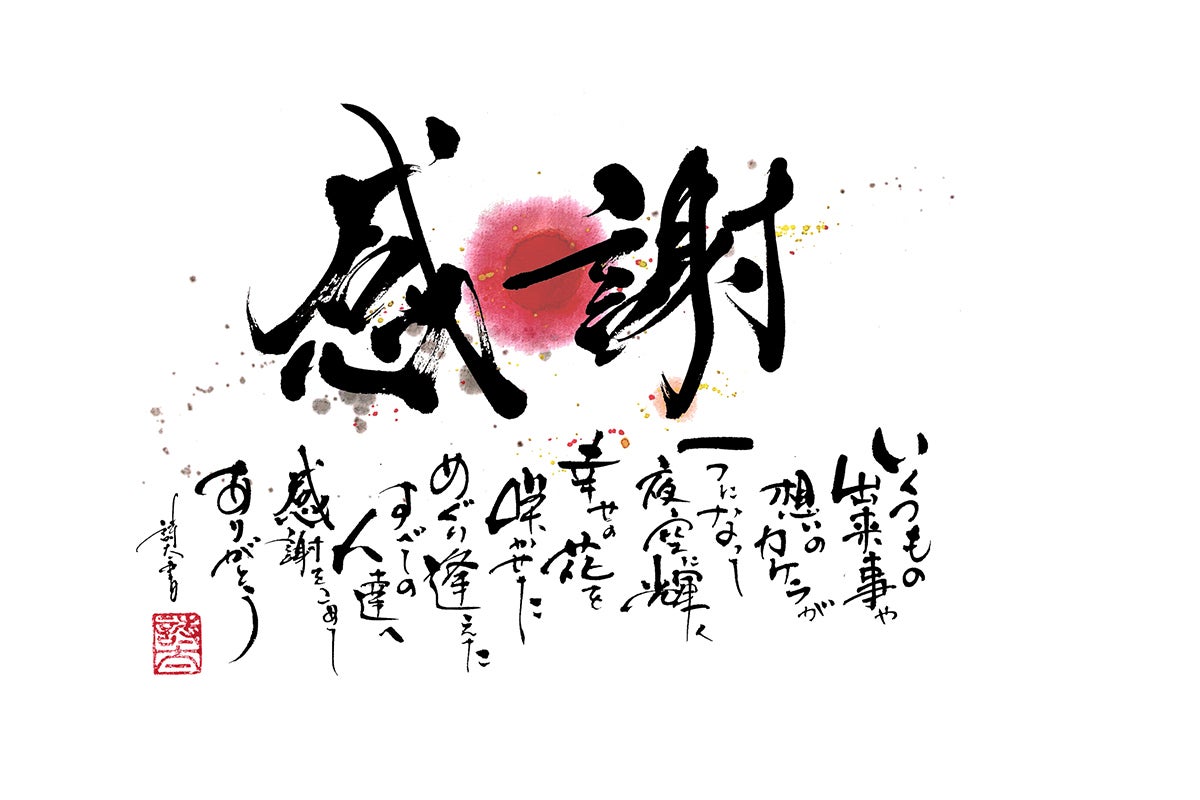 感謝
いくつもの
出来事や
想いのカケラが
一つになって
夜空に輝く
幸せの
花を
咲かせた
めぐり逢えた
すべての
人達へ
感謝をこめて
ありがとう